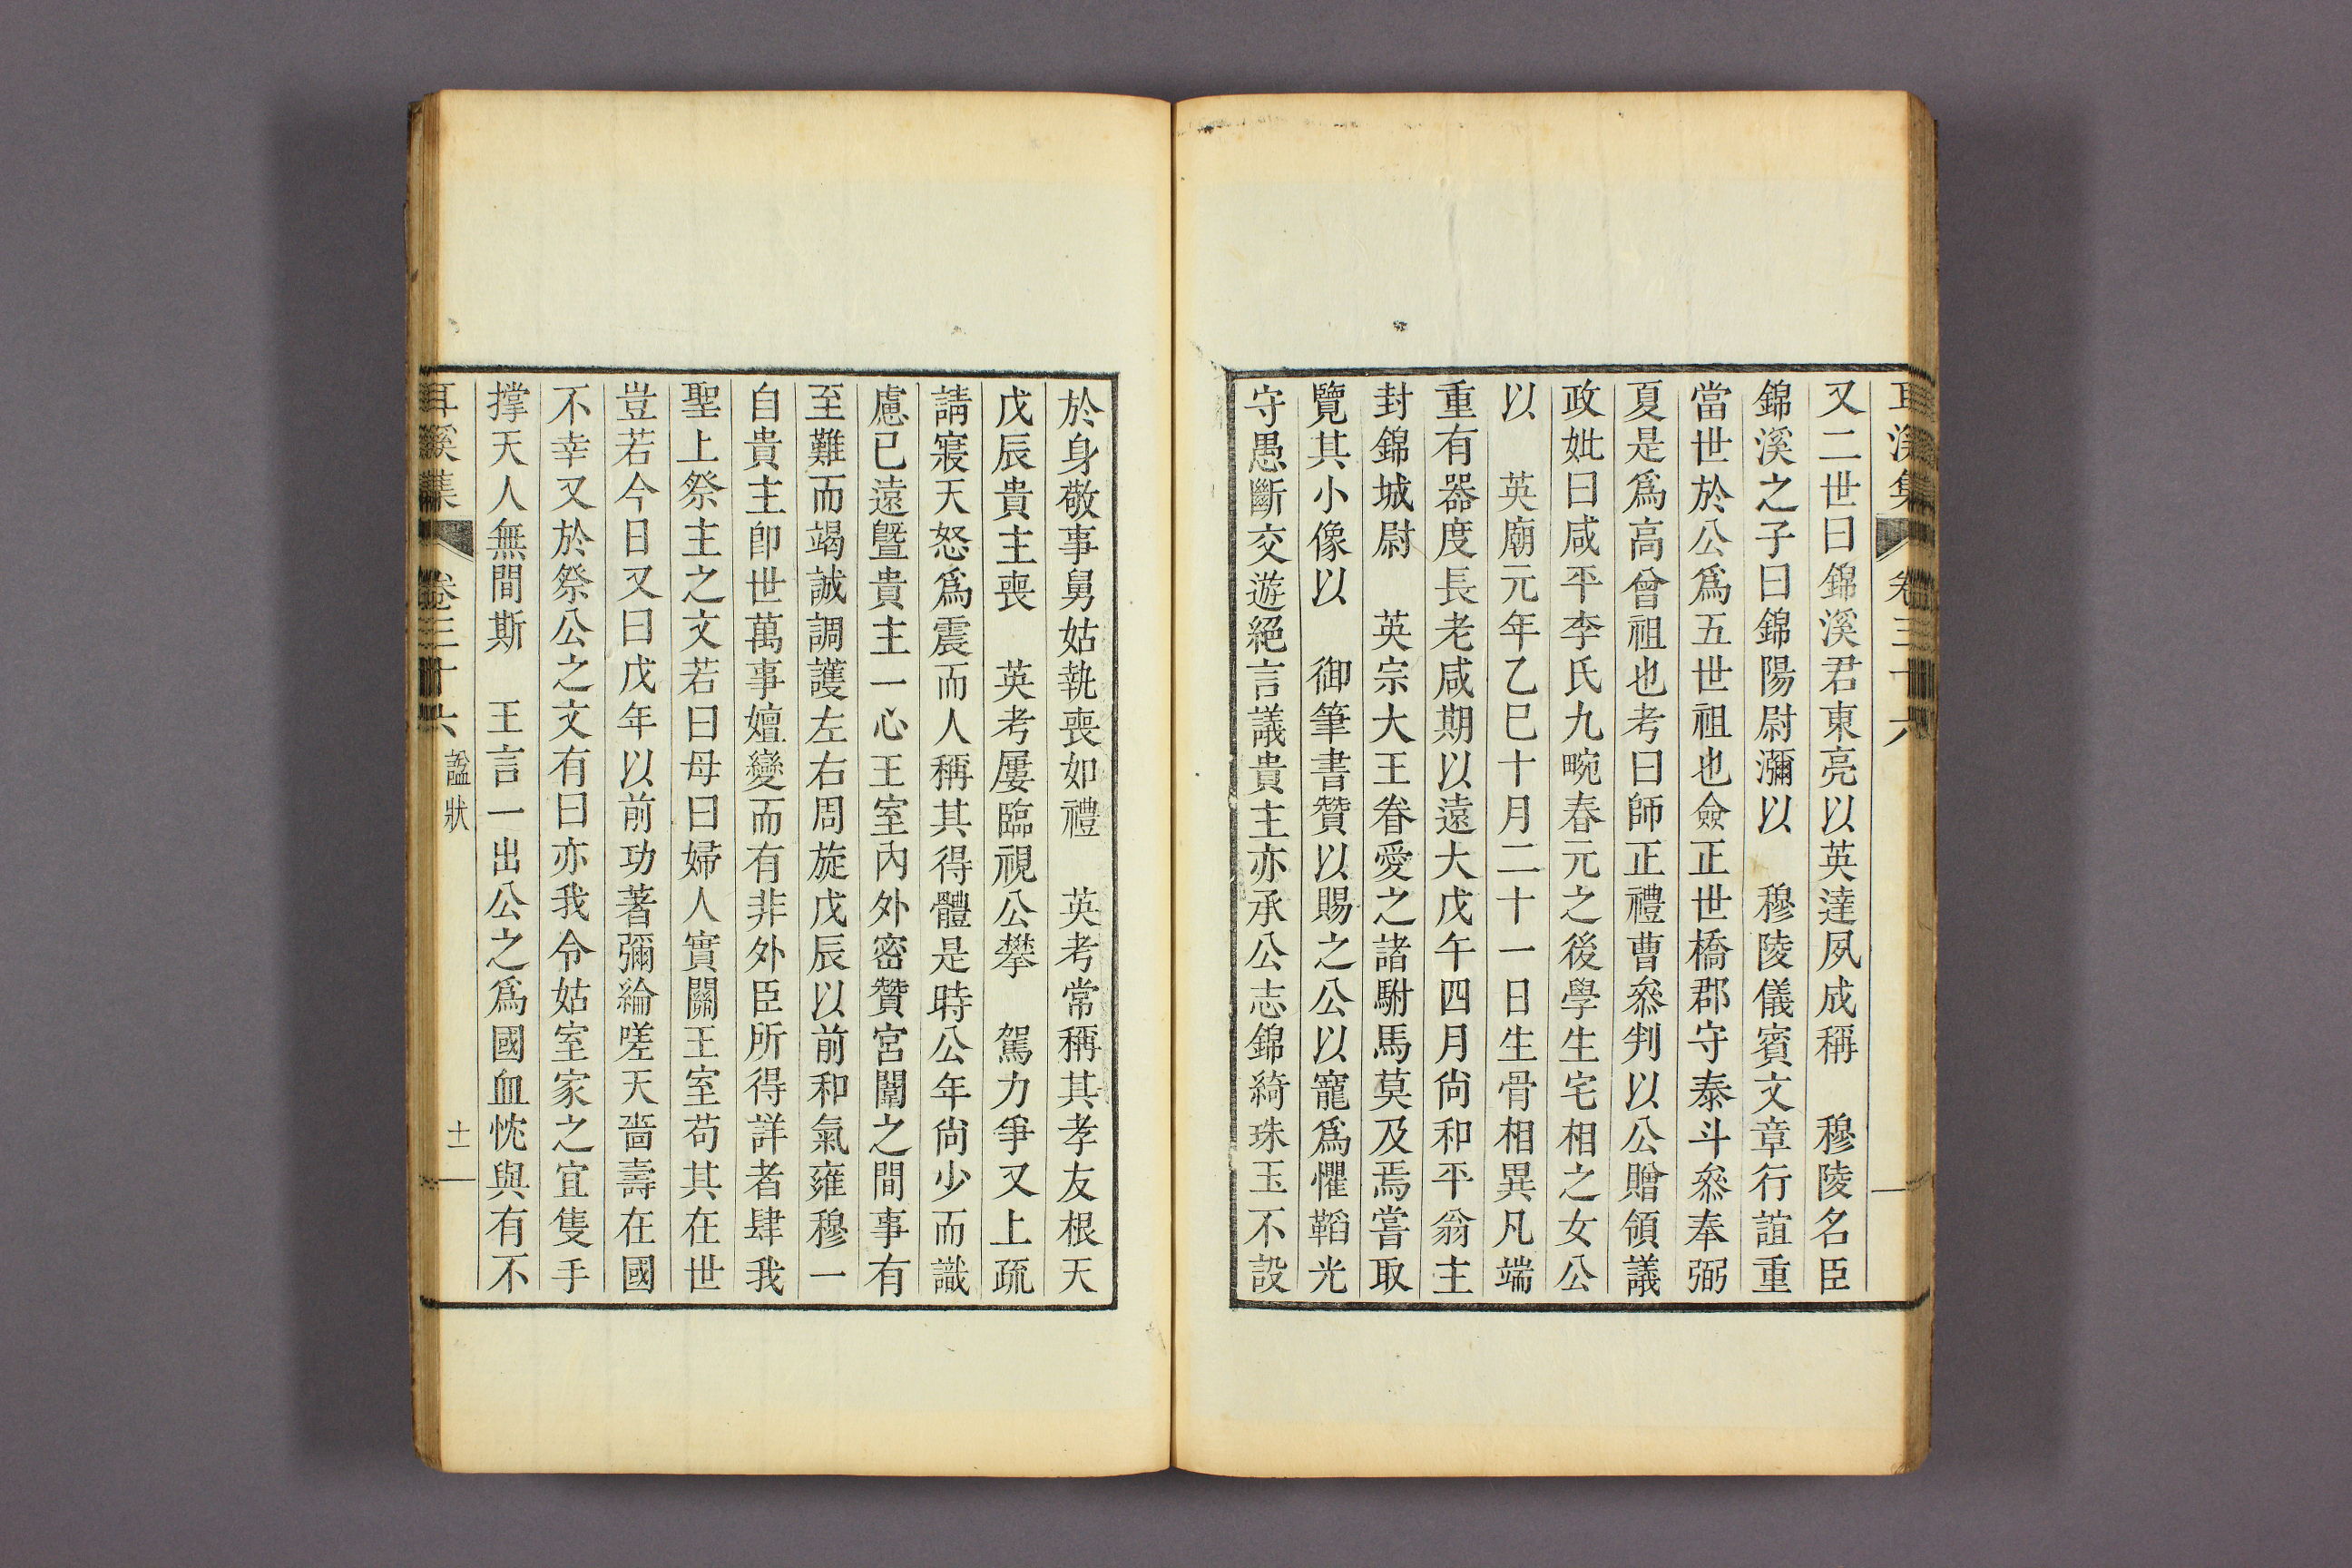 耳溪集 卷三十六
又二世曰錦溪君東亮以英達夙成稱 穆陵名臣
錦溪之子曰錦陽尉瀰以 穆陵儀賓文章行誼重
當世於公爲五世祖也僉正世橋郡守泰斗叅奉弼
夏是爲高曾祖也考曰師正禮曹叅判以公贈領議
政妣曰咸平李氏九畹春元之後學生生宅相之女公
以 英廟元年乙巳十月二十一日生骨相異凡端
重有器度長老咸期以遠大戊午四月尙和平翁主
封錦城尉 英宗大王眷愛之諸駙馬莫及焉嘗取
覽其小像以 御筆書贊以賜之公以寵爲懼韜光
守愚斷交遊絕言議貴主亦承公志錦綺珠玉不設
於身敬事舅姑執喪如禮 英考常稱其孝友根天
戊辰貴主喪 英考屢臨視公攀 駕力爭又上疏
請寢天怒爲震而人稱其得體是時公年尙少而識
慮已遠曁貴主一心王室內外密贊宮闈之間事有
至難而竭誠調護左右周旋戊辰以前和氣雍穆一
自貴主卽世萬事嬗變而有非外臣所得詳者肆我
聖上祭主之文若曰母曰婦人實關王室苟其在世
豈若今日又曰戊年以前功著彌綸嗟天嗇壽在國
不幸又於祭公之文有曰亦我令姑室家之宜隻手
撐天人無間斯 王言一出公之爲國血忱與有不
耳溪集 卷三十六 諡狀 十一